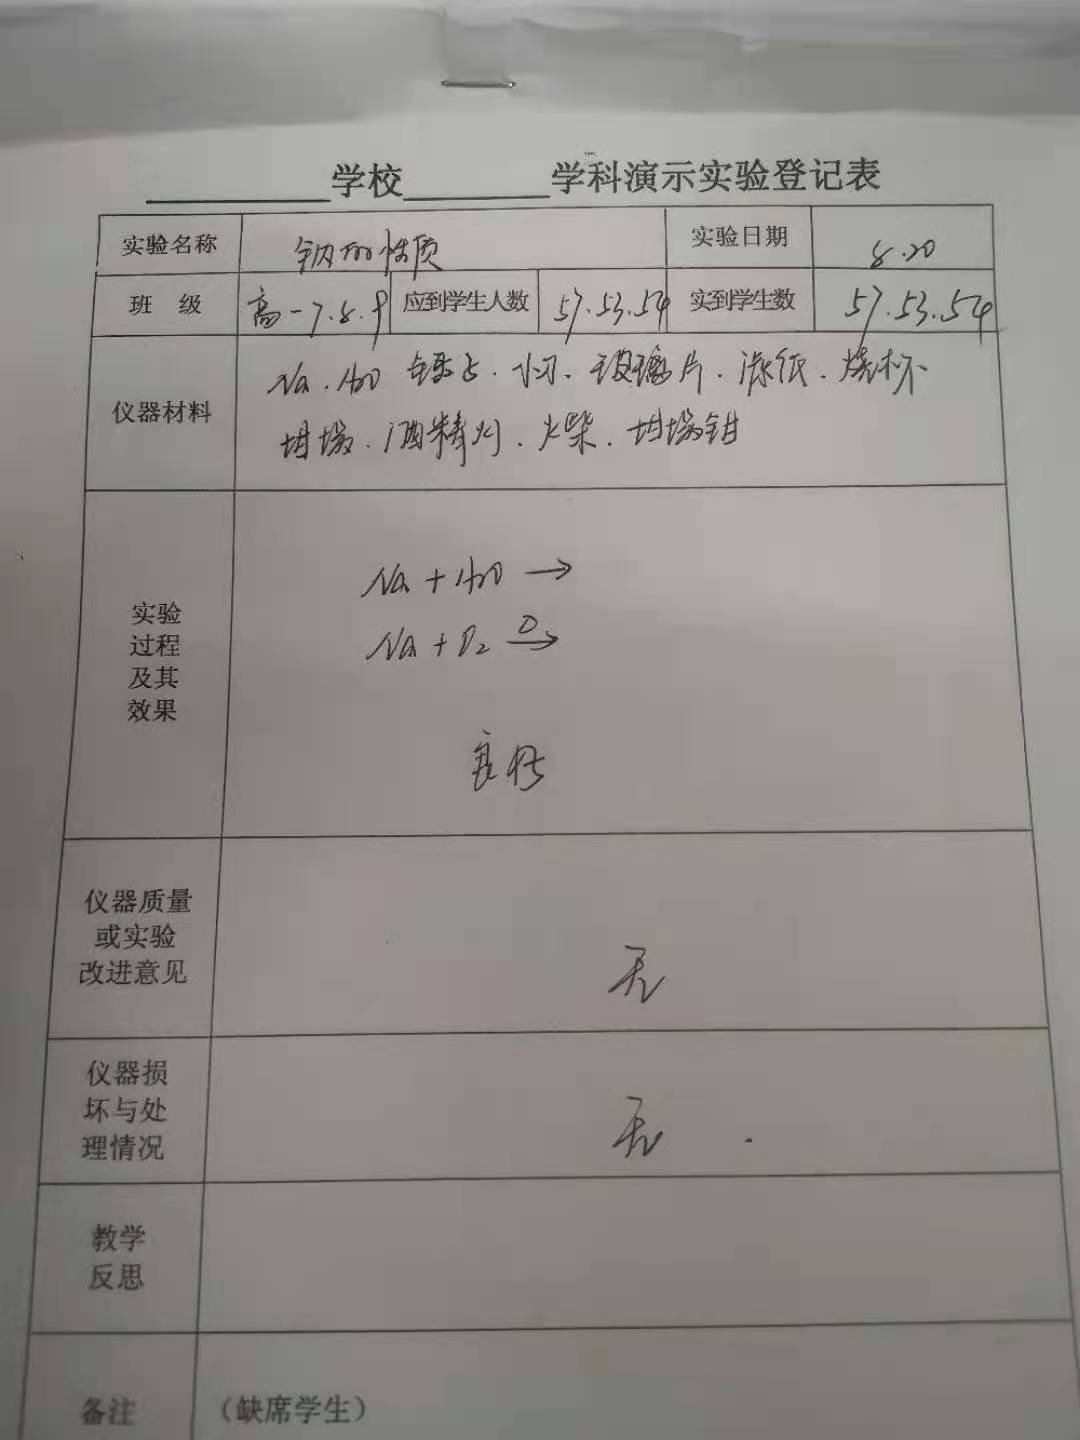 学校 学科演示实验登记表
实验名称 钠的性质 实验日期 8.20
班 级 高一7.8.9 应到学生人数 57.53.54 实到学生数 57.53.54
仪器材料 Na.H2O 镊子.小刀.玻璃片.滤纸.烧杯
坩埚.酒精灯.火柴.坩埚钳
实验
过程
及其
效果
Na+H2O→
Na+O2 △→
良好
仪器质量
或实验
改进意见
无
仪器损
坏与处
理情况
无
教学
反思
备注 （缺席学生）